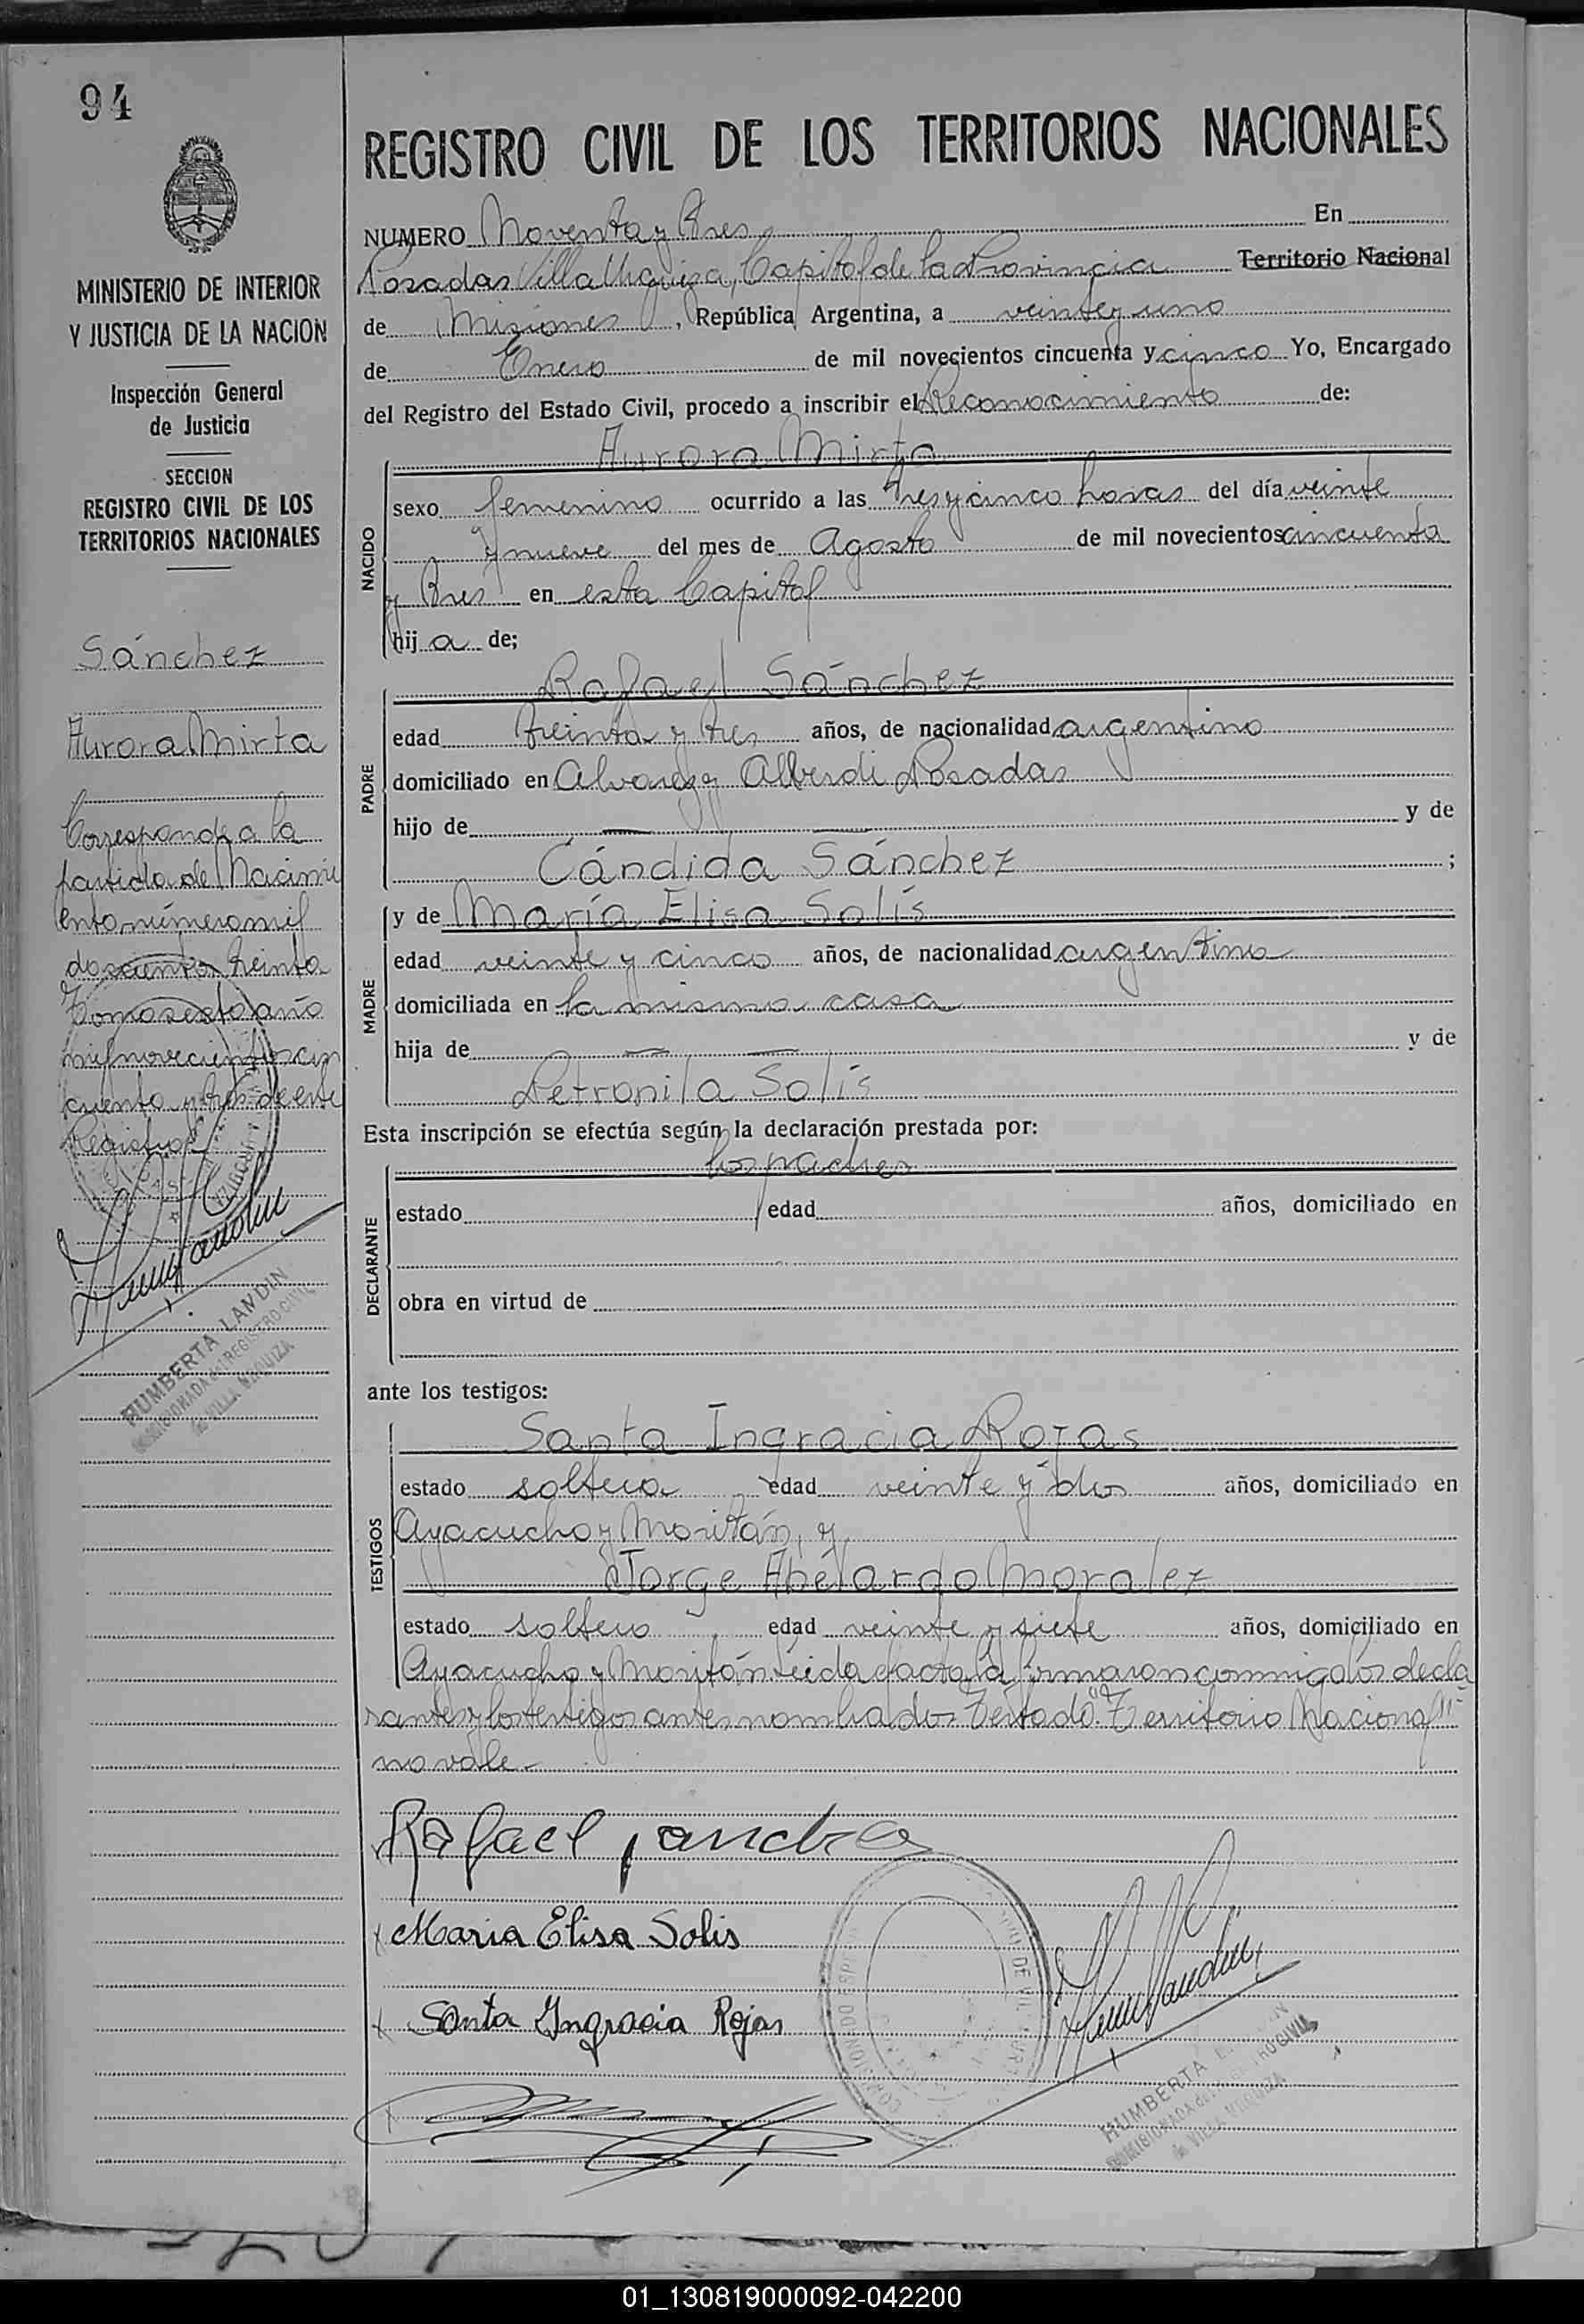 94
MINISTERIO DE INTERIOR
Y JUSTICIA DE LA NACION
Inspección General
de Justicia
SECCION
REGISTRO CIVIL DE LOS
TERRITORIOS NACIONALES
Sánchez
Aurora Mirta
Corresponde a la
partida de Nacimi
ento número mil
doscientos treinta
Tomo sexto año
mil novecientos cin
cuenta y tres de este
Registro
HUMBERTA LANDIN
COMISIONADA del REGISTRO CIVIL
de VILLA URQUIZA
REGISTRO CIVIL DE LOS TERRITORIOS NACIONALES
NUMERO Noventa y Tres En
Posadas Villa Urquiza, Capital de la Provincia Territorio Nacional
de Misiones, República Argentina, a veinte y uno
de Enero de mil novecientos cincuenta y cinco Yo, Encargado
del Registro del Estado Civil, procedo a inscribir el Reconocimiento de:
NACIDO
Aurora Mirta
sexo femenino ocurrido a las tres y cinco horas del día veinte
y nueve del mes de Agosto de mil novecientos cincuenta
y tres en esta Capital
hija de;
PADRE
Rafael Sánchez
edad treinta y tres años, de nacionalidad argentino
domiciliado en Alvarez y Alberdi Posadas
hijo de — — y de
Cándida Sánchez ;
MADRE
y de María Elisa Solís
edad veinte y cinco años, de nacionalidad argentina
domiciliada en la misma casa
hija de — — y de
Petronila Solís
Esta inscripción se efectúa según la declaración prestada por:
DECLARANTE
los padres
estado edad años, domiciliado en
obra en virtud de
ante los testigos:
TESTIGOS
Santa Ingracia Rojas
estado soltera edad veinte y dos años, domiciliado en
Ayacucho y Moritán, y
Jorge Abelardo Moralez
estado soltero edad veinte y siete años, domiciliado en
Ayacucho y Moritán Leída el acta la firmaron conmigo los decla
rantes y los testigos antes nombrados Testado "Territorio Nacional"
no vale.-
Rafael Sanchez
x Maria Elisa Solis
x Santa Ingracia Rojas
HUMBERTA
COMISIONADA del REGISTRO CIVIL
de VILLA URQUIZA
01_130819000092-042200